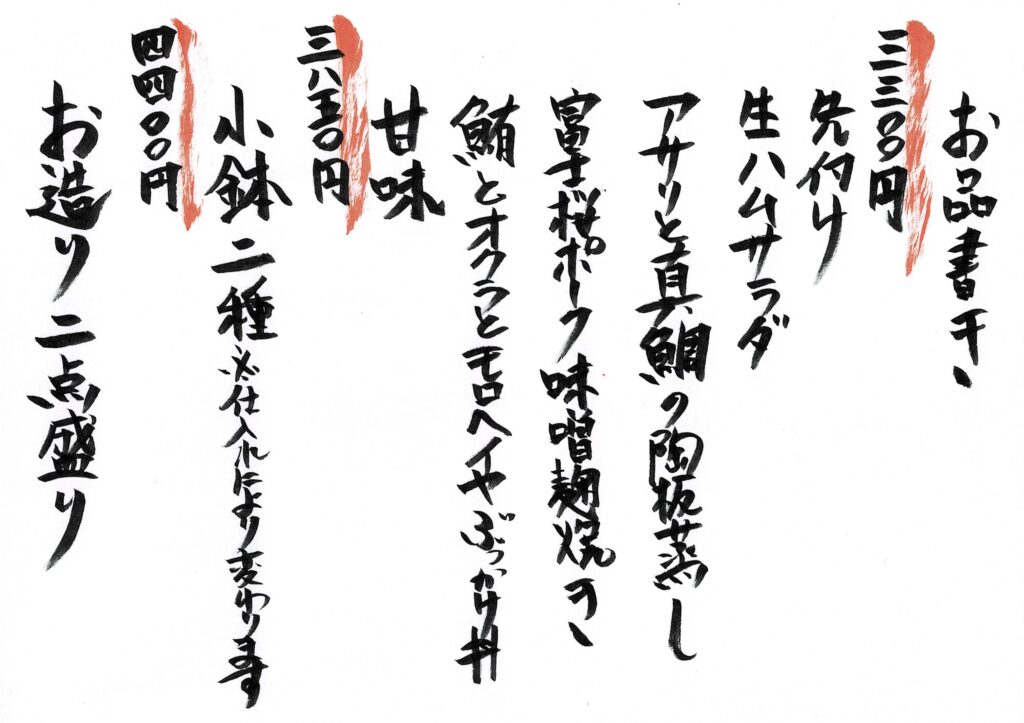 お品書き
三三〇〇円
先付け
生ハムサラダ
アサリと真鯛の陶板蒸し
富士桜ポーク味噌麹焼き
鮪とオクラとモロヘイヤぶっかけ丼
甘味
三八五〇円
小鉢二種※仕入れにより変わります
四四〇〇円
お造り二点盛り